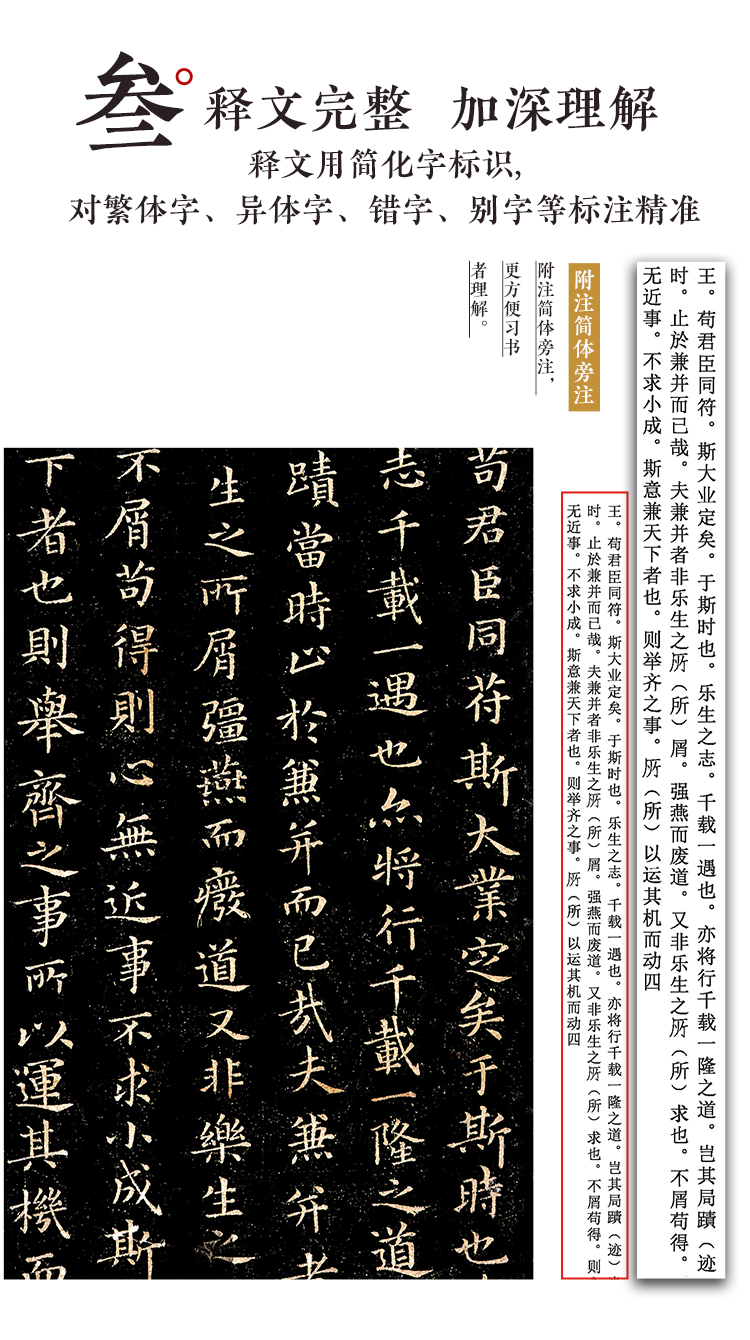 叁
释文完整 加深理解
释文用简化字标识,
对繁体字、异体字、错字、别字等标注精准
王。苟君臣同符。斯大业定矣。于斯时也。乐生之志。千载一遇也。亦将行千载一隆之道。岂其局蹟（迹
时。止於兼并而已哉。夫兼并者非乐生之所（所）屑。强燕而废道。又非乐生之所（所）求也。不屑苟得。
无近事。不求小成。斯意兼天下者也。则举齐之事。所（所）以运其机而动四
附注简体旁注
附注简体旁注，
更方便习书
者理解。
王。苟君臣同符。斯大业定矣。于斯时也。乐生之志。千载一遇也。亦将行千载一隆之道。岂其局蹟（迹）
时。止於兼并而已哉。夫兼并者非乐生之所（所）屑。强燕而废道。又非乐生之所（所）求也。不屑苟得。则
无近事。不求小成。斯意兼天下者也。则举齐之事。所（所）以运其机而动四
苟君臣同苻斯大業定矣于斯時也
志千載一遇也亦将行千載一隆之道
蹟當時止於兼并而已哉夫兼并者
生之所屑彊燕而癈道又非樂生之
不屑苟得則心無近事不求小成斯
下者也則舉齊之事所以運其機而